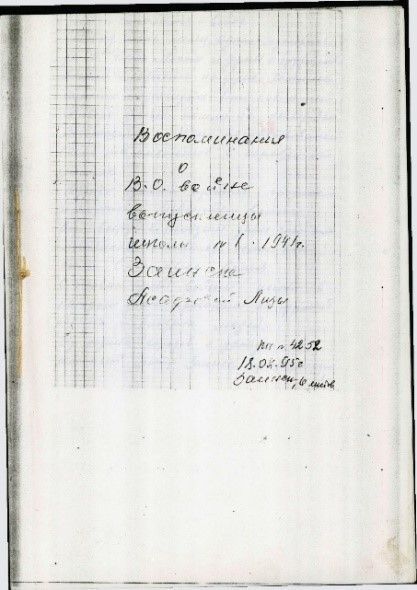 Воспоминания
о
В.О. войне
выпускницы
школы №1. 1941г.
Заинска
Лизы
КП № 4252
18.04.95г
Заинск, 6 листов